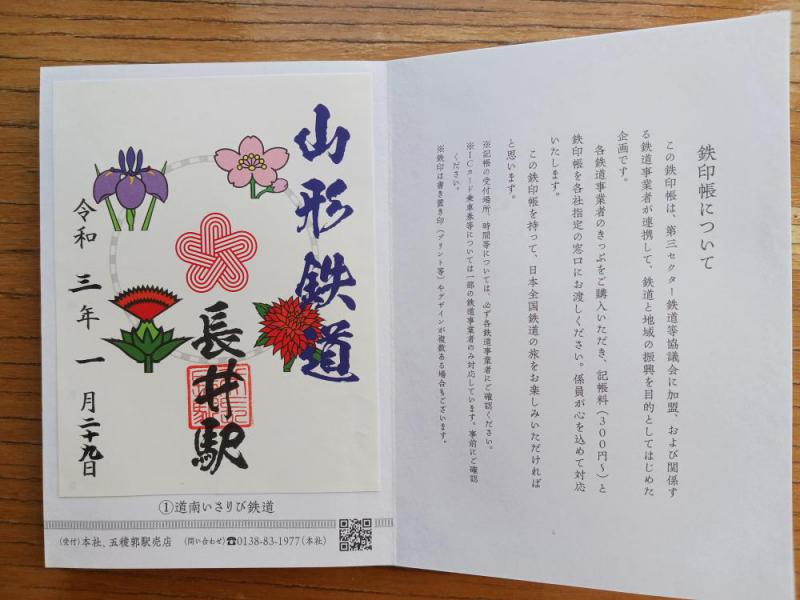 鉄印帳について
この鉄印帳は、第三セクター鉄道等協議会に加盟、および関係す
る鉄道事業者が連携して、鉄道と地域の振興を目的としてはじめた
企画です。
各鉄道事業者のきっぷをご購入いただき、記帳料（300円〜）と
鉄印帳を各社指定の窓口にお渡しください。係員が心を込めて対応
いたします。
この鉄印帳を持って、日本全国鉄道の旅をお楽しみいただければ
と思います。
※記帳の受付場所、時間等については、必ず各鉄道事業者にご確認ください。
※ICカード乗車券等については一部の鉄道事業者のみ対応しています。事前にご確認
ください。
※鉄印は書き置き印（プリント等）やデザインが複数ある場合もございます。
山形鉄道
長井駅
令和三年一月二十九日
①道南いさりび鉄道
（受付）本社、五稜郭駅売店 （問い合わせ）☎0138-83-1977（本社）